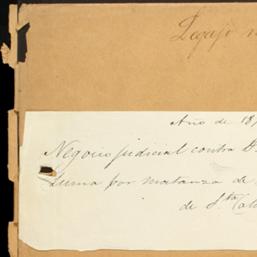 Legajo n
Año de 18
Negocio judicial contra D.
Luma por matanza de
de S.ta Cata